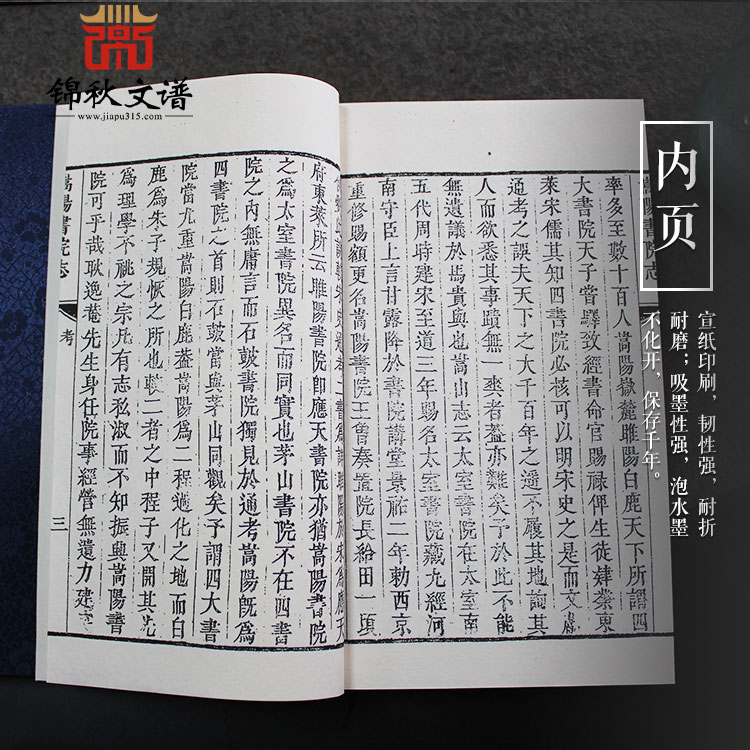 锦秋文谱
www.jiapu315.com
内页
宣纸印刷，韧性强，耐折
耐磨；吸墨性强，泡水墨
不化开，保存千年。
嵩陽書院志
率多至數十百人嵩陽嶽麓睢陽白鹿天下所謂四
大書院天子嘗驛致經書命官賜祿俾生徒肄業東
萊宋儒其知四書院必核可以明宋史之是而文獻
通考之誤夫天下之大千百年之遥不履其地論其
人而欲悉其事蹟無一爽者蓋亦難矣予於此不能
無遺議於馬貴與也嵩山志云太室書院在太室南
五代周時建宋至道三年賜名太室書院藏九經河
南守臣上言甘露降於書院講堂景祐二年勅西京
重修賜額更名嵩陽書院王曾奏置院長給田一頃
府東萊所云睢陽書院即應天書院亦猶嵩陽書院
之爲太室書院異名而同實也茅山書院不在四書
院之内無庸言而石皷書院獨見於通考嵩陽既爲
四書院之首則石皷當與茅山同觀矣予謂四大書
院當尤重嵩陽白鹿蓋嵩陽爲二程過化之地而白
鹿爲朱子規恢之所也二者之中程子又開其先
爲理學不祧之宗凡有志私淑而不知振興嵩陽書
院可乎哉耿逸菴先生身任院事經營無遺力建
嵩陽書院志 考 三